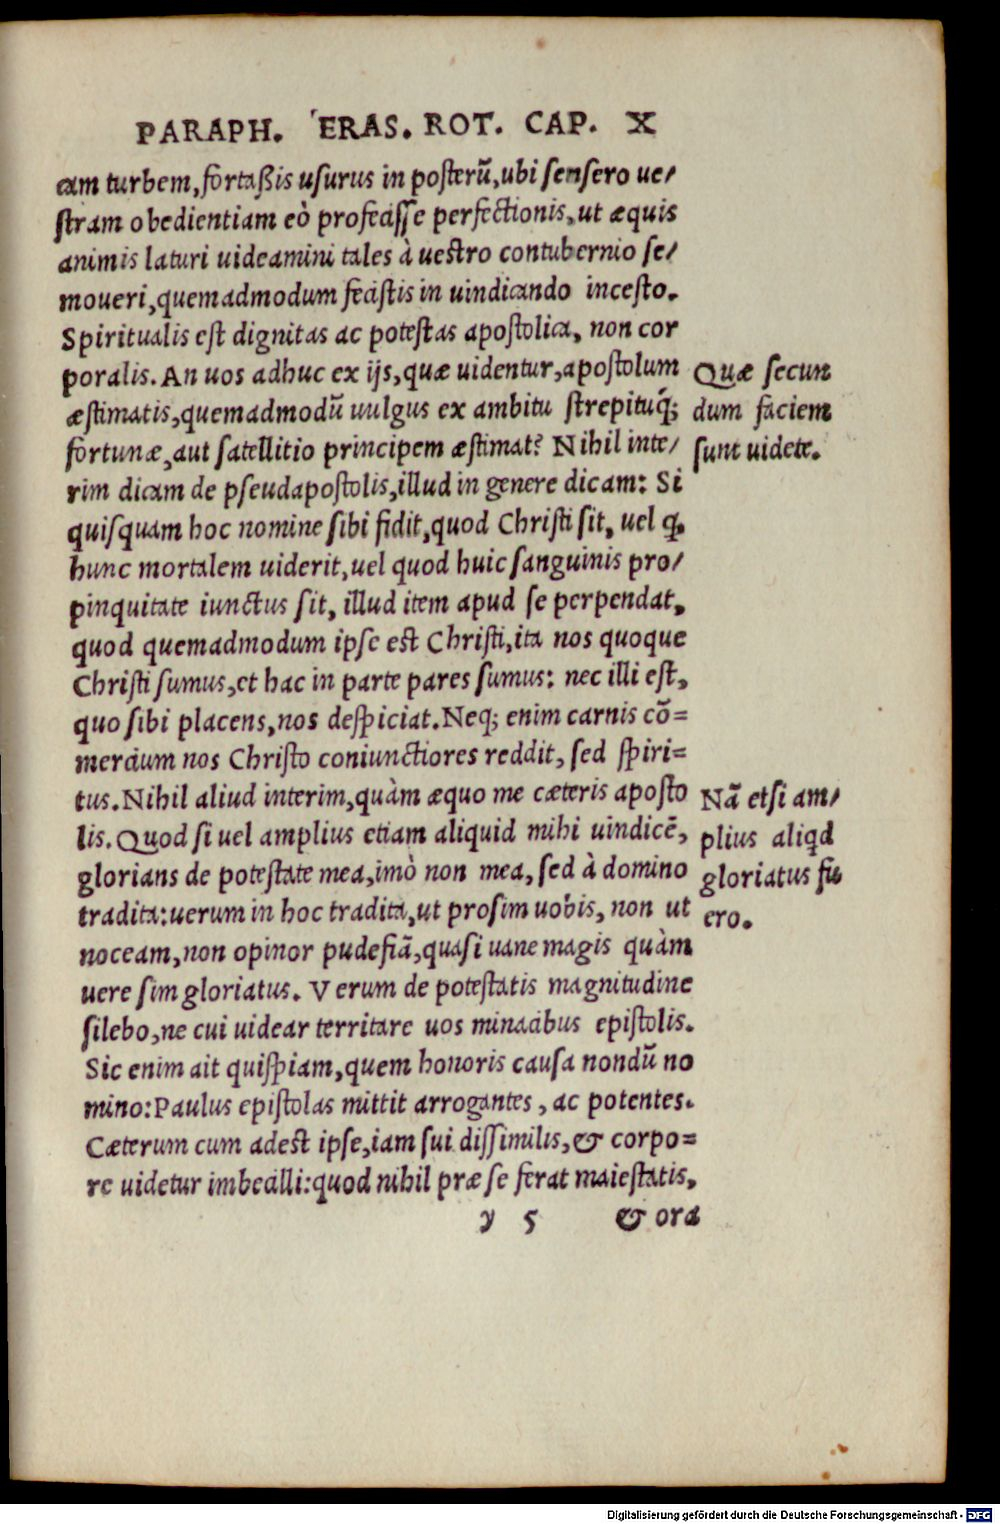 PARAPH. ERAS. ROT. CAP. X
cam turbem, fortaßis usurus in posterũ, ubi sensero ue/
stram obedientiam eò profecisse perfectionis, ut æquis
animis laturi uideamini tales à uestro contubernio se/
moueri, quemadmodum fecistis in uindicando incesto.
Spiritualis est dignitas ac potestas apostolica, non cor
poralis. An uos adhuc ex ijs, quæ uidentur, apostolum
æstimatis, quemadmodũ uulgus ex ambitu strepituq́;
fortunæ, aut satellitio principem æstimat? Nihil inte/
rim dicam de pseudapostolis, illud in genere dicam: Si
quisquam hoc nomine sibi fidit, quod Christi sit, uel ꝙ
hunc mortalem uiderit, uel quod huic sanguinis pro/
pinquitate iunctus sit, illud item apud se perpendat,
quod quemadmodum ipse est Christi, ita nos quoque
Christi sumus, et hac in parte pares sumus: nec illi est,
quo sibi placens, nos despiciat. Neq; enim carnis cõ=
mercium nos Christo coniunctiores reddit, sed spiri=
tus. Nihil aliud interim, quàm æquo me cæteris aposto
lis. Quod si uel amplius etiam aliquid mihi uindicẽ,
glorians de potestate mea, imò non mea, sed à domino
tradita: uerum in hoc tradita, ut prosim uobis, non ut
noceam, non opinor pudefiã, quasi uane magis quàm
uere sim gloriatus. Verum de potestatis magnitudine
silebo, ne cui uidear territare uos minacibus epistolis.
Sic enim ait quispiam, quem honoris causa nondũ no
mino: Paulus epistolas mittit arrogantes, ac potentes.
Cæterum cum adest ipse, iam sui dissimilis, & corpo=
re uidetur imbecilli: quod nihil præ se ferat maiestatis,
y 5 & ora
Quæ secun
dum faciem
sunt uidete.
Nã etsi am/
plius aliqd
gloriatus fu
ero.
Digitalisierung gefördert durch die Deutsche Forschungsgemeinschaft - DFG